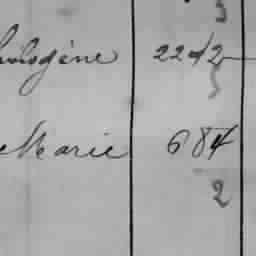 3
2242
3
Marie 684
2